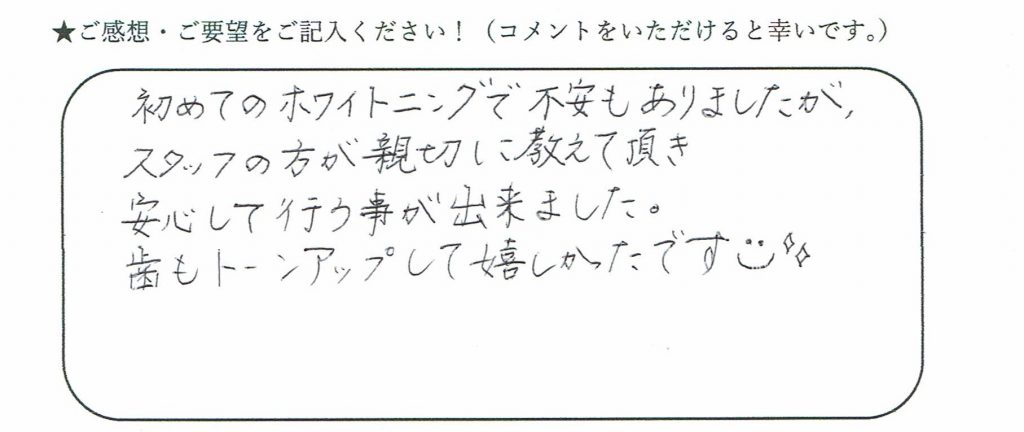 ★ご感想・ご要望をご記入ください！（コメントをいただけると幸いです。）
初めてのホワイトニングで不安もありましたが,
スタッフの方が親切に教えて頂き
安心して行う事が出来ました。
歯もトーンアップして嬉しかったです